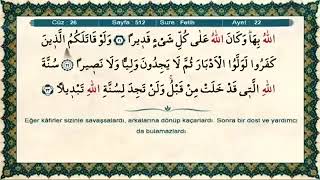 Cüz : 26 Sayfa : 512 Sure : Fetih Ayet : 22
اللّٰهُ بِهَاۜ وَكَانَ اللّٰهُ عَلٰى كُلِّ شَيْءٍ قَد۪يرًا ﴿٢١﴾ وَلَوْ قَاتَلَكُمُ الَّذ۪ينَ
كَفَرُوا لَوَلَّوُا الْاَدْبَارَ ثُمَّ لَا يَجِدُونَ وَلِيًّا وَلَا نَص۪يرًا ﴿٢٢﴾ سُنَّةَ
اللّٰهِ الَّت۪ي قَدْ خَلَتْ مِنْ قَبْلُۚ وَلَنْ تَجِدَ لِسُنَّةِ اللّٰهِ تَبْد۪يلًا
Eğer kâfirler sizinle savaşsalardı, arkalarına dönüp kaçarlardı. Sonra bir dost ve yardımcı
da bulamazlardı.